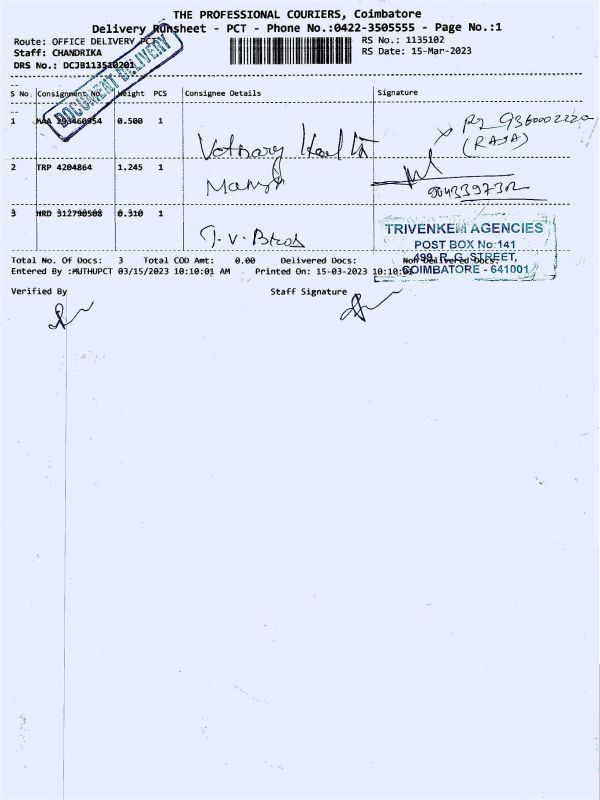 THE PROFESSIONAL COURIERS, Coimbatore
Delivery Runsheet - PCT - Phone No.:0422-3505555 - Page No.:1
Route: OFFICE DELIVERY PCT
Staff: CHANDRIKA
DRS No.: DCJB113510201
RS No.: 1135102
RS Date: 15-Mar-2023
DOCUMENT DELIVERY
S No. Consignment No. Weight PCS Consignee Details Signature
1 MAA 293460954 0.500 1
9360002220
(RAJA)
2 TRP 4204864 1.245 1
3 HRD 312790508 0.310 1
T. V. Bros
TRIVENKEM AGENCIES
POST BOX No 141
499, R. G. STREET,
COIMBATORE - 641001
Total No. Of Docs: 3 Total COD Amt: 0.00 Delivered Docs: Non Delivered Docs:
Entered By :MUTHUPCT 03/15/2023 10:10:01 AM Printed On: 15-03-2023 10:10:03
Verified By Staff Signature